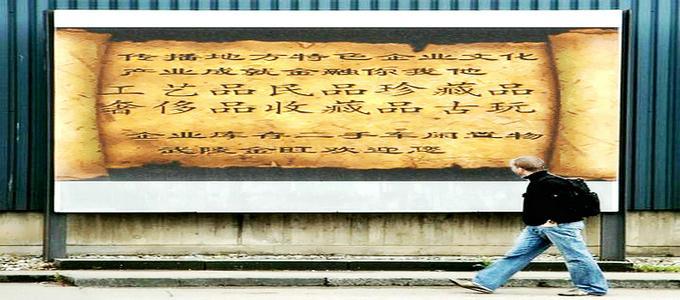 传播地方特色企业文化
产业成就金融你我他
工艺品民品珍藏品
奢侈品收藏品古玩
企业库存二手车闲置物
武陵金旺欢迎您